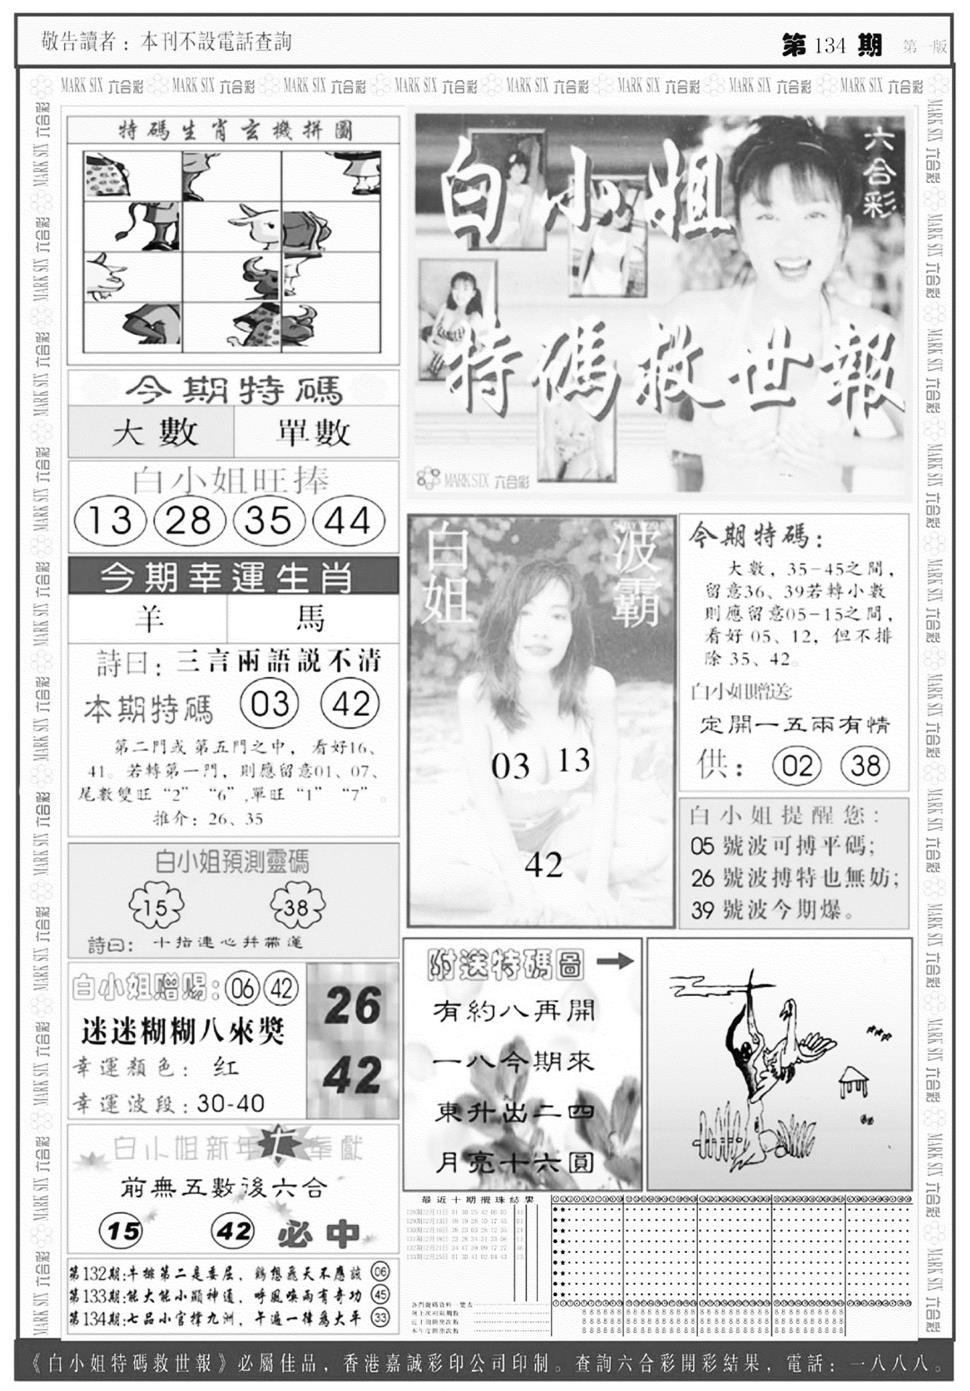 敬告讀者：本刊不設電話查詢
第 134 期 第一版
MARK SIX 六合彩 MARK SIX 六合彩 MARK SIX 六合彩 MARK SIX 六合彩 MARK SIX 六合彩 MARK SIX 六合彩 MARK SIX 六合彩 MARK SIX 六合彩
特碼生肖玄機拼圖
今期特碼
大數 單數
白小姐旺捧
13 28 35 44
今期幸運生肖
羊 馬
詩曰：三言兩語說不清
本期特碼 03 42
第二門或第五門之中，看好16、
41。若轉第一門，則應留意01、07、
尾數雙旺“2” “6”,單旺“1” “7”。
推介：26、35
白小姐預測靈碼
15 38
詩曰：十指連心并蒂蓮
白小姐赠赐：06 42
迷迷糊糊八來獎
幸運顏色：红
幸運波段：30-40
26
42
白小姐新年奉獻
前無五數後六合
15 42 必中
第132期:牛排第二是委屈，鷄想飛天不應該 06
第133期:能大能小顯神通，呼風喚雨有奇功 45
第134期:七品小官撐九洲，干過一律為大平 33
白小姐
特碼救世報
六合彩
MARK SIX 六合彩
白姐 波霸
03 13
42
今期特碼：
大數，35-45之間，
留意36、39若轉小數
則應留意05-15之間，
看好 05、12，但不排
除 35、42。
白小姐贈送:
定開一五兩有情
供：02 38
白小姐提醒您：
05 號波可搏平碼；
26 號波搏特也無妨；
39 號波今期爆。
附送特碼圖
有約八再開
一八今期來
東升出二四
月亮十六圓
最近十期攪珠結果
《白小姐特碼救世報》必屬佳品，香港嘉誠彩印公司印制。查詢六合彩開彩結果，電話：一八八八。